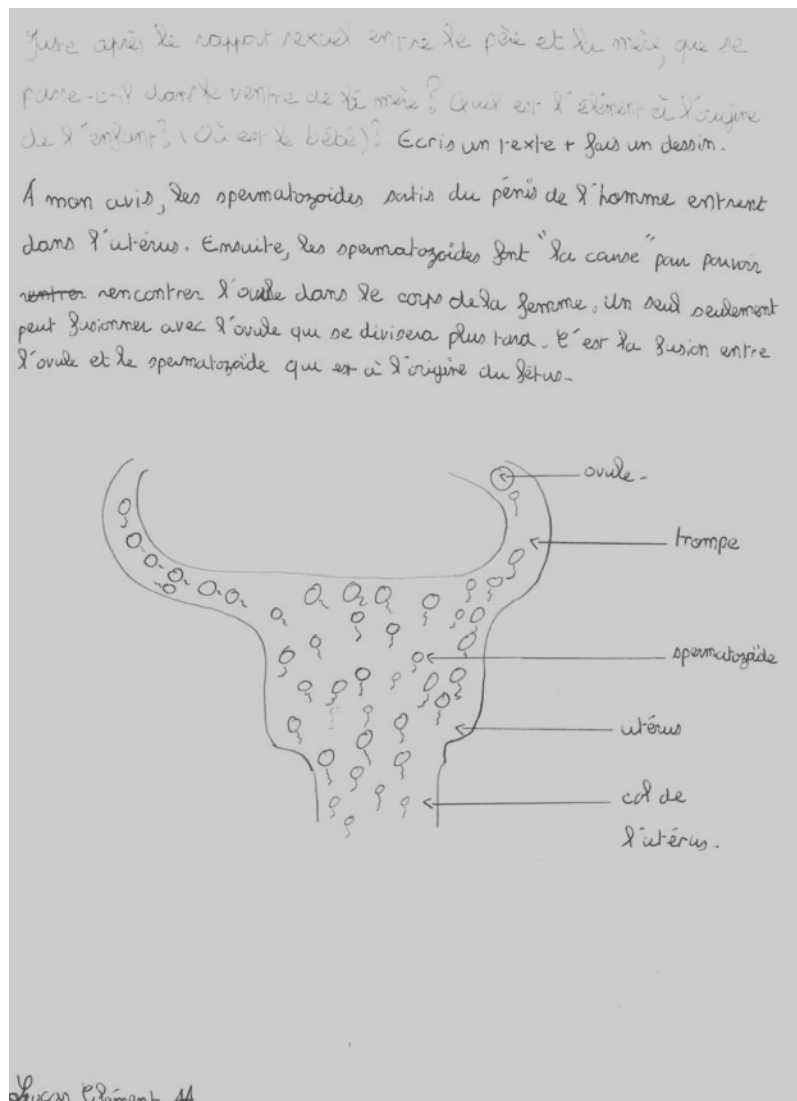 Juste après le rapport sexuel entre le père et la mère, que se
passe-t-il dans le ventre de la mère? Quel est l'élément à l'origine
de l'enfant? (Où est le bébé)? Ecris un texte + fais un dessin.
A mon avis, les spermatozoides sortis du pénis de l'homme entrent
dans l'utérus. Ensuite, les spermatozoides font "la course" pour pouvoir
rentrer rencontrer l'ovule dans le corps de la femme. Un seul seulement
peut fusionner avec l'ovule qui se divisera plus tard. C'est la fusion entre
l'ovule et le spermatozoide qui est à l'origine du fétus.
ovule.
trompe
spermatozoïde
utérus
col de
l'utérus.
Lucas Clément 11